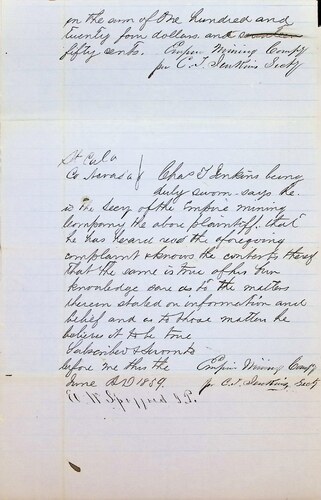 in the sum of One hundred and
twenty four dollars and
fifty cents. Empire Mining Compy
per C. T. Jenkins Secty
St Cala
Co Nevada } Chas T Jenkins being
duly sworn says he
is the Secy of the Empire mining
Company the above plaintiff. that
he has heard read the foregoing
complaint & knows the contents thereof
that the same is true of his own
knowledge save as to the matters
therein stated on information and
belief and as to those matters he
believes it to be true
Subscribed & Sworn to
before me this the Empire Mining Compy
June AD 1859. per C. T. Jenkins, Secty